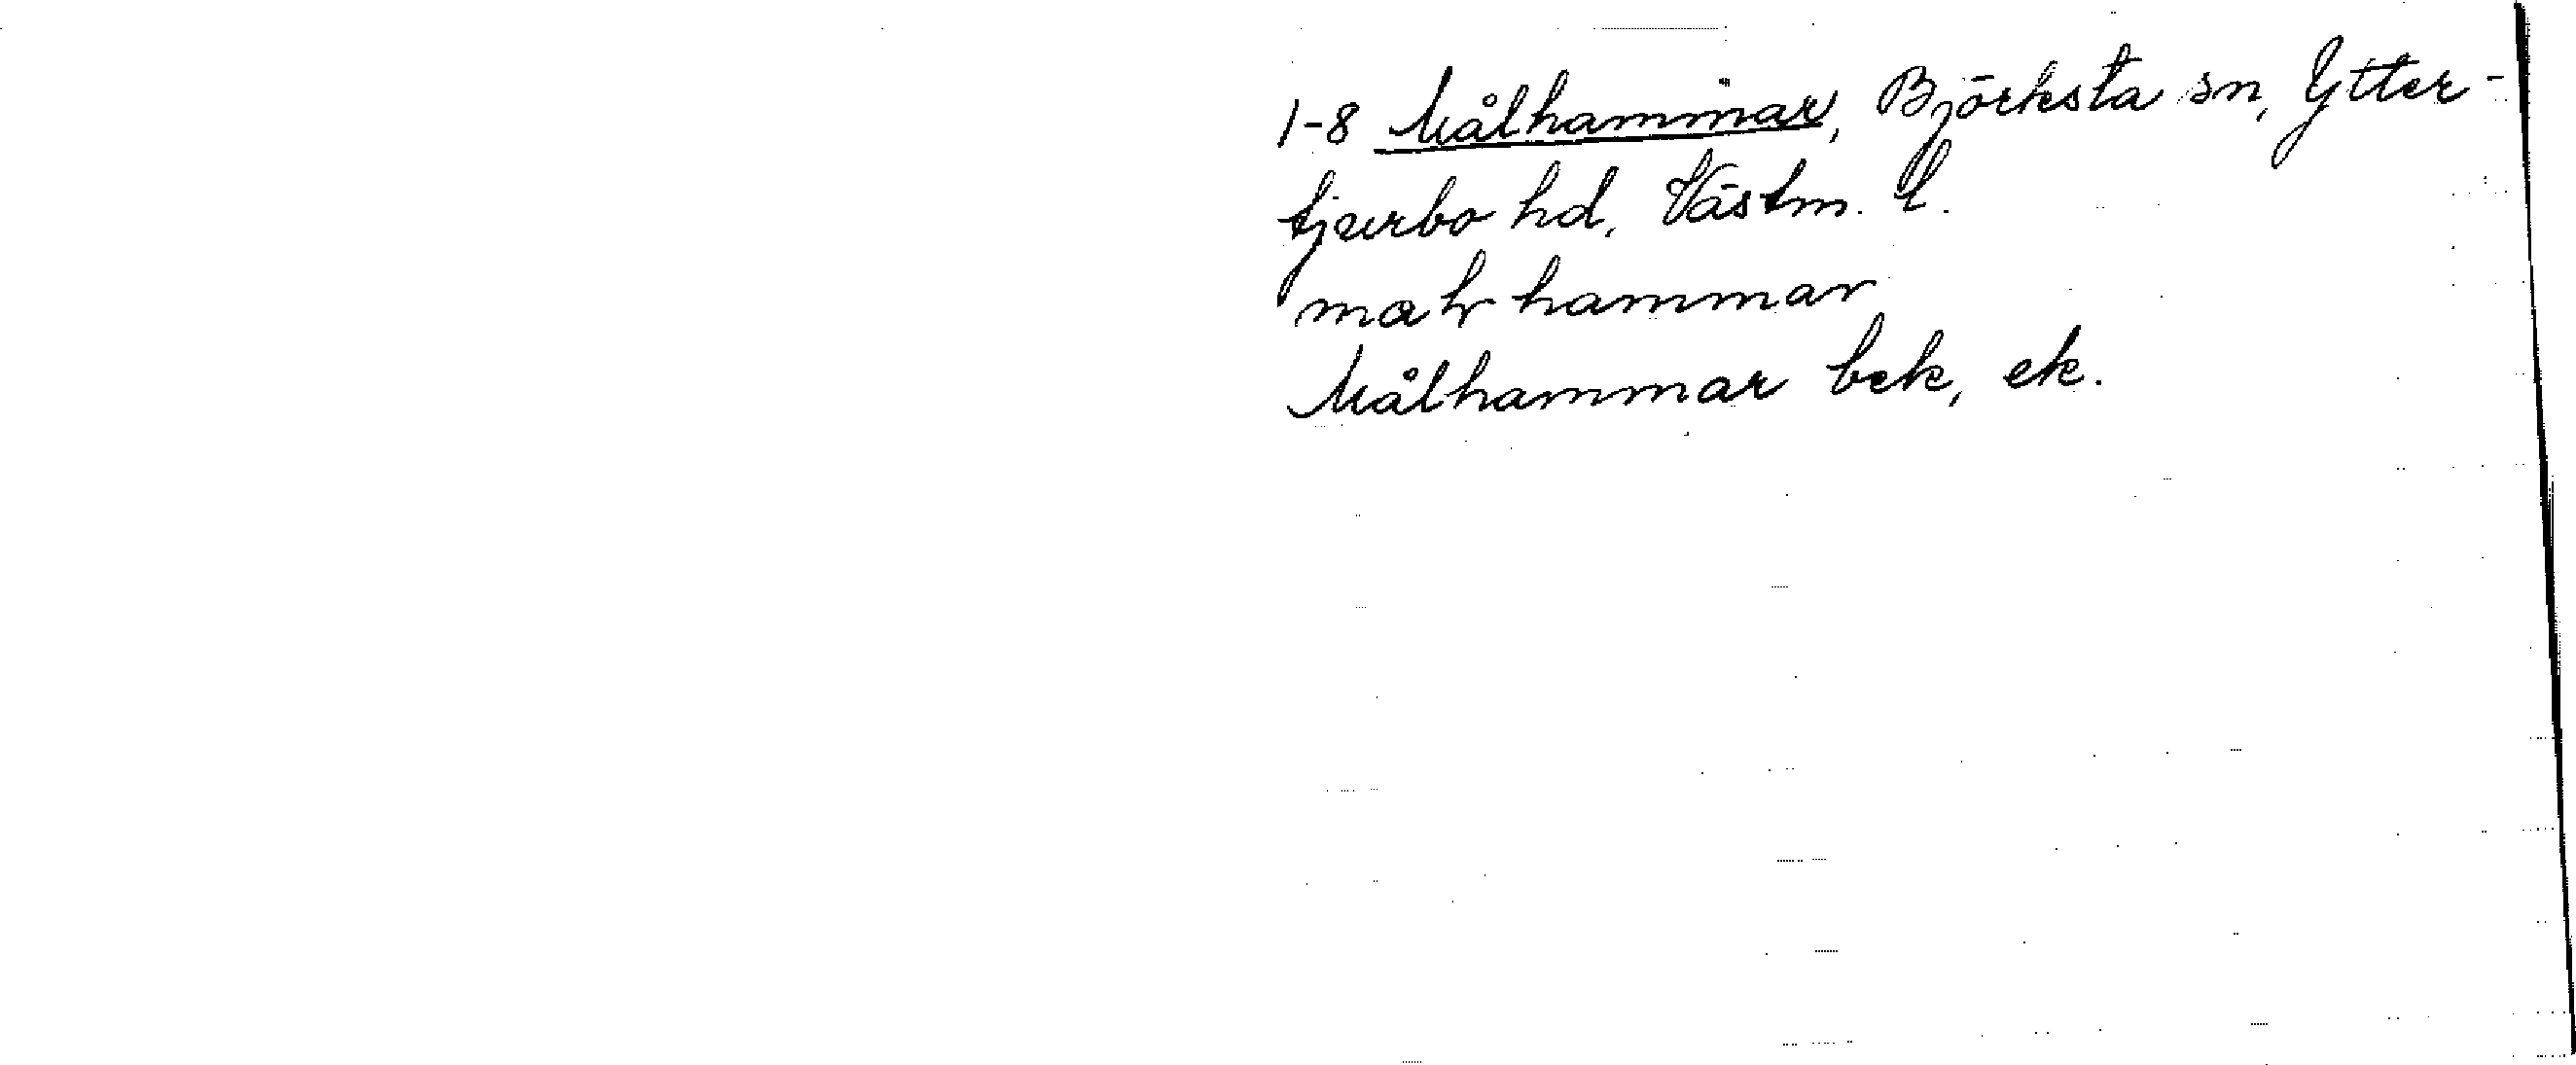 1-8 Målhammar, Björksta sn, Ytter-
tjurbo hd, Västm. l.
hammar
Målhammar bek, ek.